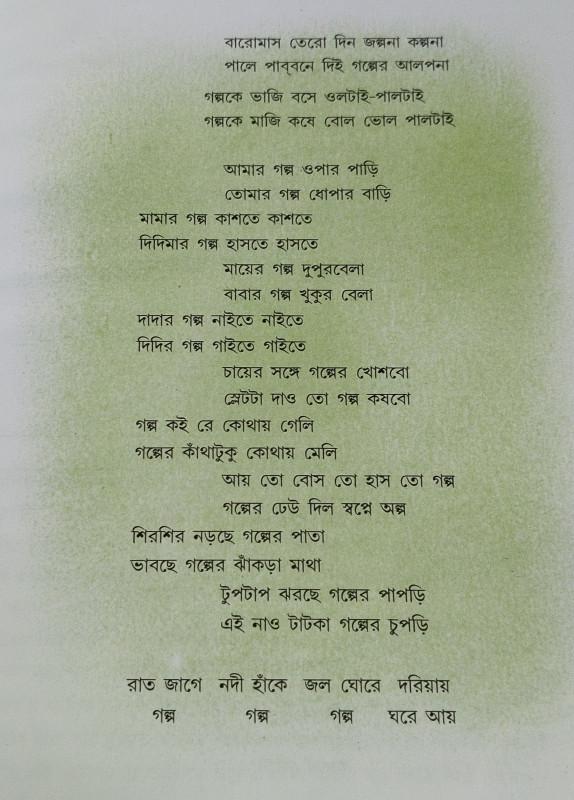 বারোমাস তেরো দিন জল্পনা কল্পনা
পালে পাব্বনে দিই গল্পের আলপনা
গল্পকে ভাজি বসে ওলটাই-পালটাই
গল্পকে মাজি কষে বোল ভোল পালটাই
আমার গল্প ওপার পাড়ি
তোমার গল্প ধোপার বাড়ি
মামার গল্প কাশতে কাশতে
দিদিমার গল্প হাসতে হাসতে
মায়ের গল্প দুপুরবেলা
বাবার গল্প খুকুর বেলা
দাদার গল্প নাইতে নাইতে
দিদির গল্প গাইতে গাইতে
চায়ের সঙ্গে গল্পের খোশবো
স্লেটটা দাও তো গল্প কষবো
গল্প কই রে কোথায় গেলি
গল্পের কাঁথাটুকু কোথায় মেলি
আয় তো বোস তো হাস তো গল্প
গল্পের ঢেউ দিল স্বপ্নে অল্প
শিরশির নড়ছে গল্পের পাতা
ভাবছে গল্পের ঝাঁকড়া মাথা
টুপটাপ ঝরছে গল্পের পাপড়ি
এই নাও টাটকা গল্পের চুপড়ি
রাত জাগে নদী হাঁকে জল ঘোরে দরিয়ায়
গল্প গল্প গল্প ঘরে আয়